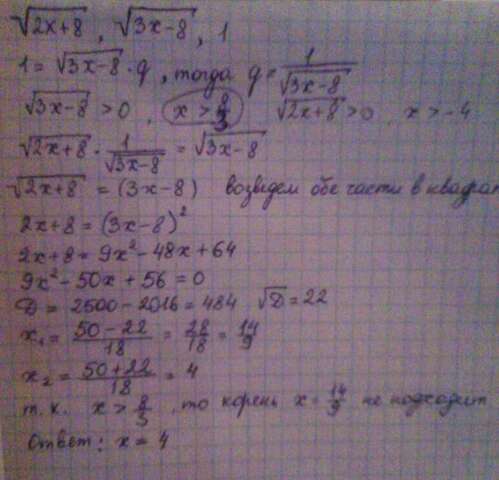 √(2x+8) , √(3x-8) , 1
1 = √(3x-8) · q , тогда q = 1/√(3x-8)
√(3x-8) > 0 , x > 8/3 √(2x+8) > 0 , x > -4
√(2x+8) · 1/√(3x-8) = √(3x-8)
√(2x+8) = (3x-8) возведем обе части в квадрат
2x+8 = (3x-8)²
2x+8 = 9x² - 48x + 64
9x² - 50x + 56 = 0
D = 2500 - 2016 = 484 √D = 22
x₁ = (50-22)/18 = 28/18 = 14/9
x₂ = (50+22)/18 = 4
т.к. x > 8/3 , то корень x = 14/9 не подходит
Ответ: x = 4